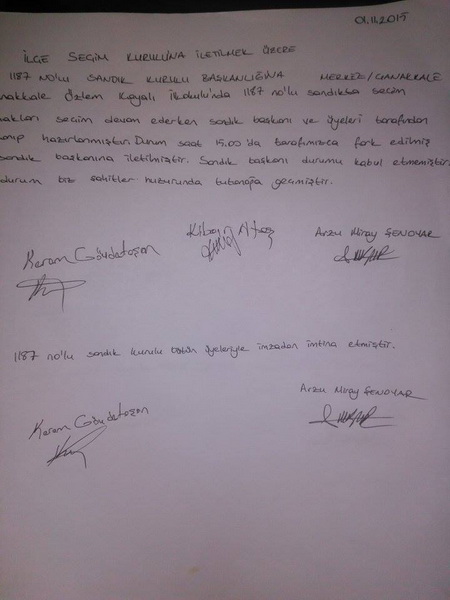 01.11.2015
İLÇE SEÇİM KURULUNA İLETİLMEK ÜZERE
1187 NO'LU SANDIK KURULU BAŞKANLIĞINA MERKEZ/ÇANAKKALE
nakkale Özlem Kayalı İlkokulu'nda 1187 no'lu sandıkta seçim
akları seçim devam ederken sandık başkanı ve üyeleri tarafından
anıp hazırlanmıştır. Durum saat 15.00'da tarafımızca fark edilmiş
sandık başkanına iletilmiştir. Sandık başkanı durumu kabul etmemiştir
durum biz şahitler huzurunda tutanağa geçmiştir.
Kerem Gövdetaşan
Arzu Miray ŞENOYAR
1187 no'lu sandık kurulu bütün üyeleriyle imzadan imtina etmiştir.
Arzu Miray ŞENOYAR
Kerem Gövdetaşan